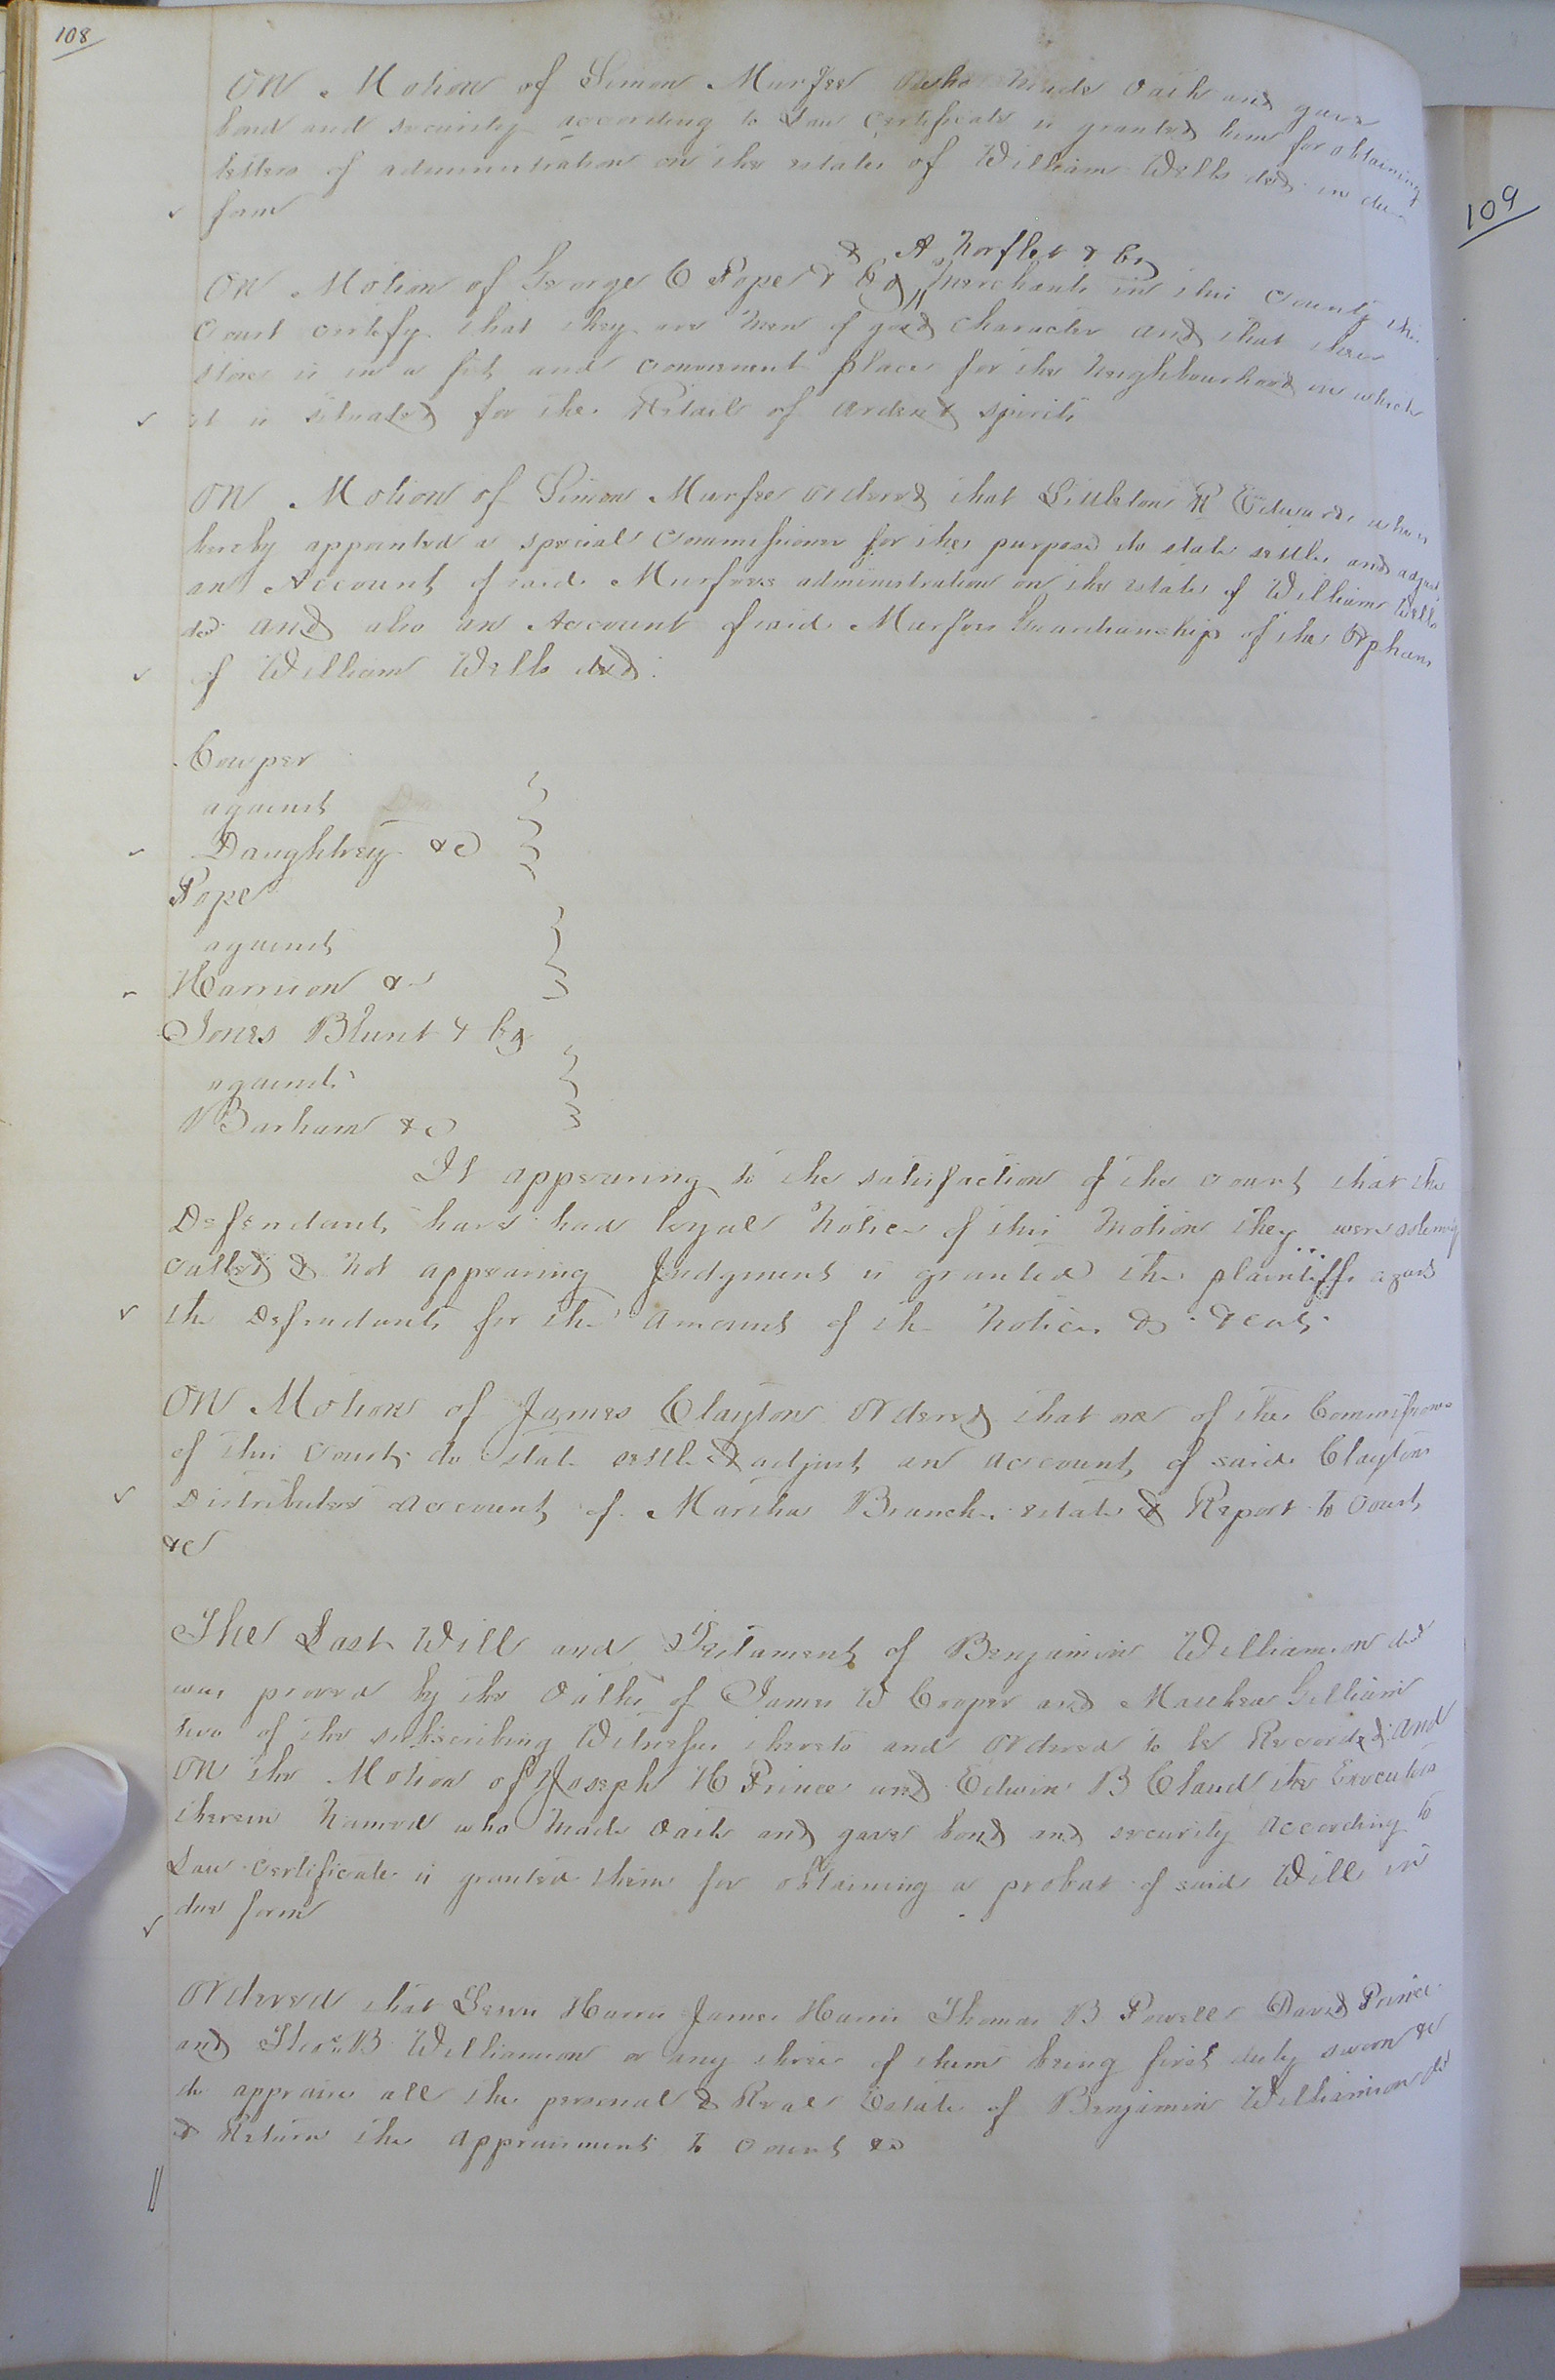 108
On Motion of Simon Murfee who made oath and gave
bond and security according to Law Certificate is granted him for obtaining
letters of administration on the estate of William Wells decd in due
form
& A Norflet & Co
On Motion of George C Pope & Co Merchants in this County the
Court certify that they are Men of good character and that their
store is in a fit and convenient place for the Neighbourhood in which
it is situated for the Retail of ardent spirits
On Motion of Simon Murfee ordered that Littleton R Edwards who is
hereby appointed a special Commissioner for the purpose do state settle and adjust
an Account of said Murfees administration on the estate of William Wells
decd and also an Account of said Murfees Guardianship of the Orphans
of William Wells decd.
Cowper
against
Daughtrey &c
Pope
against
Harrison &c
Jones Blunt & Co
against
Barham &c
It appearing to the satisfaction of the court that the
Defendants have had legal Notice of this Motion they were solemnly
called & Not appearing Judgment is granted the plaintiffs against
the Defendants for the Amount of the Notices & &costs
On Motion of James Clayton Ordered that one of the Commissioners
of this Court do state settle & adjust an account of said Clayton
Distributees account of Martha Branch estate & Report to Court
&c
The Last Will and Testament of Benjamin Williamson decd
was proved by the Oaths of James W Cooper and Mathew Gilliam
two of the subscribing Witnesses thereto and Ordered to be Recorded And
On the Motion of Joseph H Prince and Edwin B Claud the Executors
therein Named who Made Oath and gave bond and security According to
Law Certificate is granted them for obtaining a probat of said Will in
due form
Ordered that Lewis Harris James Harris Thomas B Powell David Prince
and Thos B Williamson or any three of them being first duly sworn &c
do appraise all the personal & Real Estate of Benjamin Williamson decd
& Return the Appraisment to Court &c
109